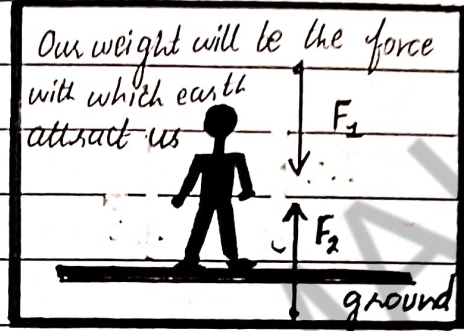 Our weight will be the force
with which earth
attract us
F₁
F₂
ground